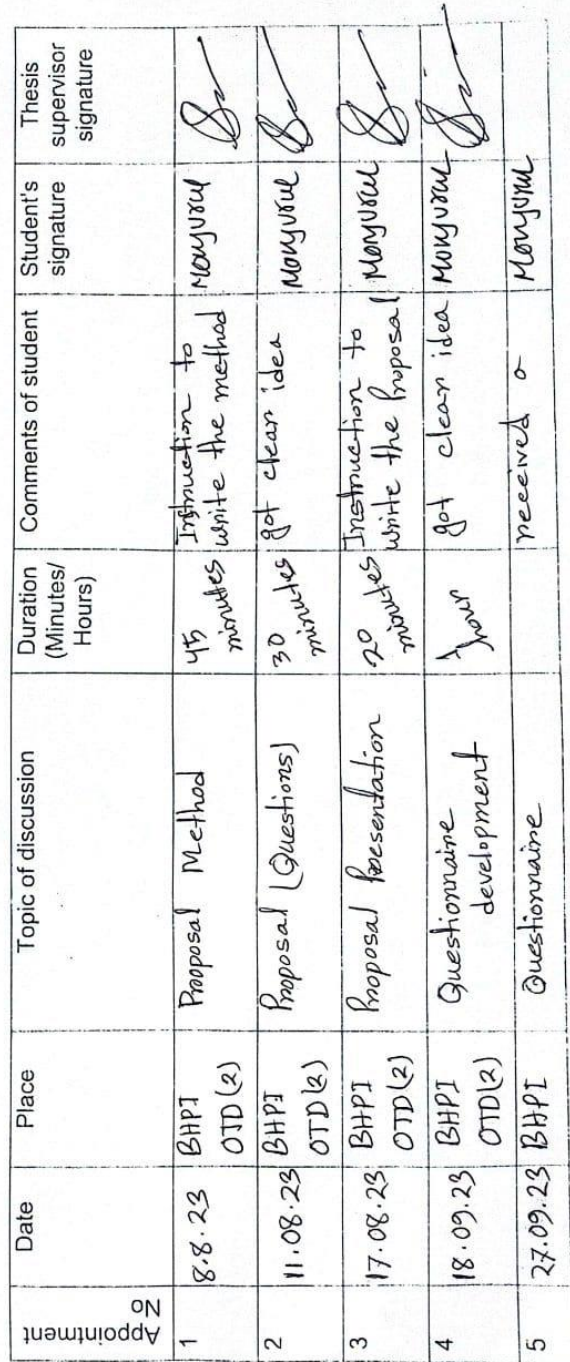 Appointment No
Date
Place
Topic of discussion
Duration (Minutes/ Hours)
Comments of student
Student's signature
Thesis supervisor signature
1
8.8.23
BHPI
OTD(2)
Proposal Method
45
minutes
Instruction to
write the method
Monjurul
2
11.08.23
BHPI
OTD(2)
Proposal (Questions)
30
minutes
got clear idea
Monjurul
3
17.08.23
BHPI
OTD(2)
Proposal Presentation
20
minutes
Instruction to
write the Proposal
Monjurul
4
18.09.23
BHPI
OTD(2)
Questionnaire
development
1 hour
got clear idea
Monjurul
5
27.09.23
BHPI
Questionnaire
received a
Monjurul